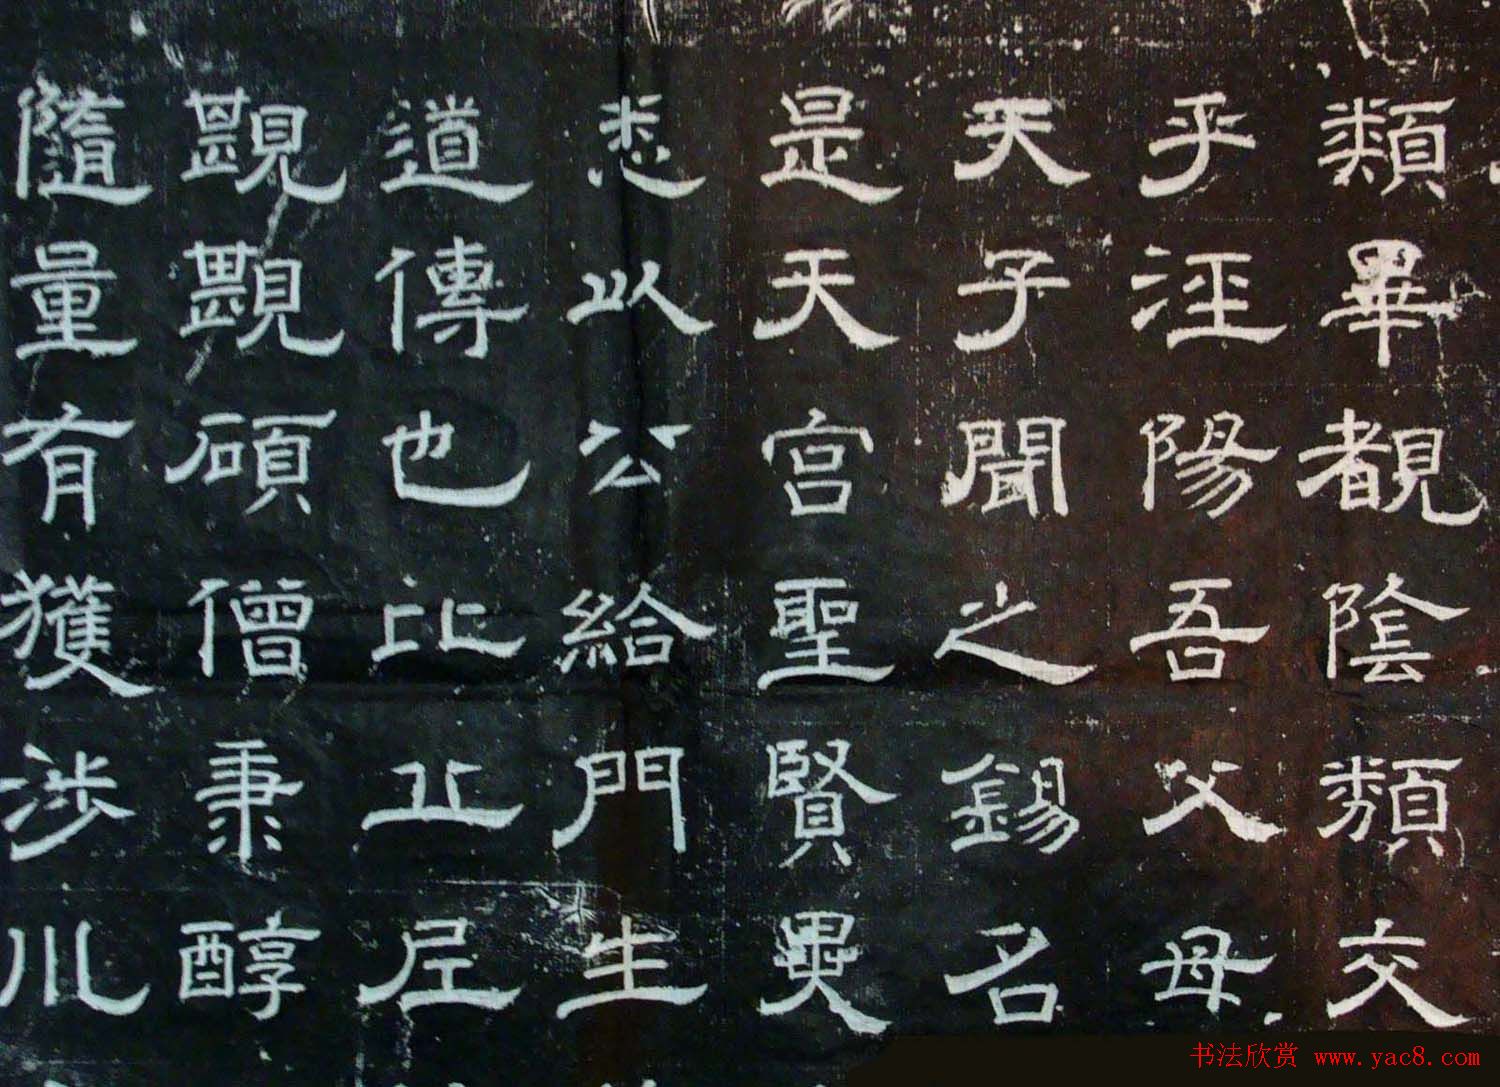 類畢覩陰類交
乎涇陽吾父母
天子聞之錫名
是天宮聖賢
悉以公給門生
道傳也比丘尼
碩僧秉醇
隨量有獲涉川
书法欣赏 www.yac8.com